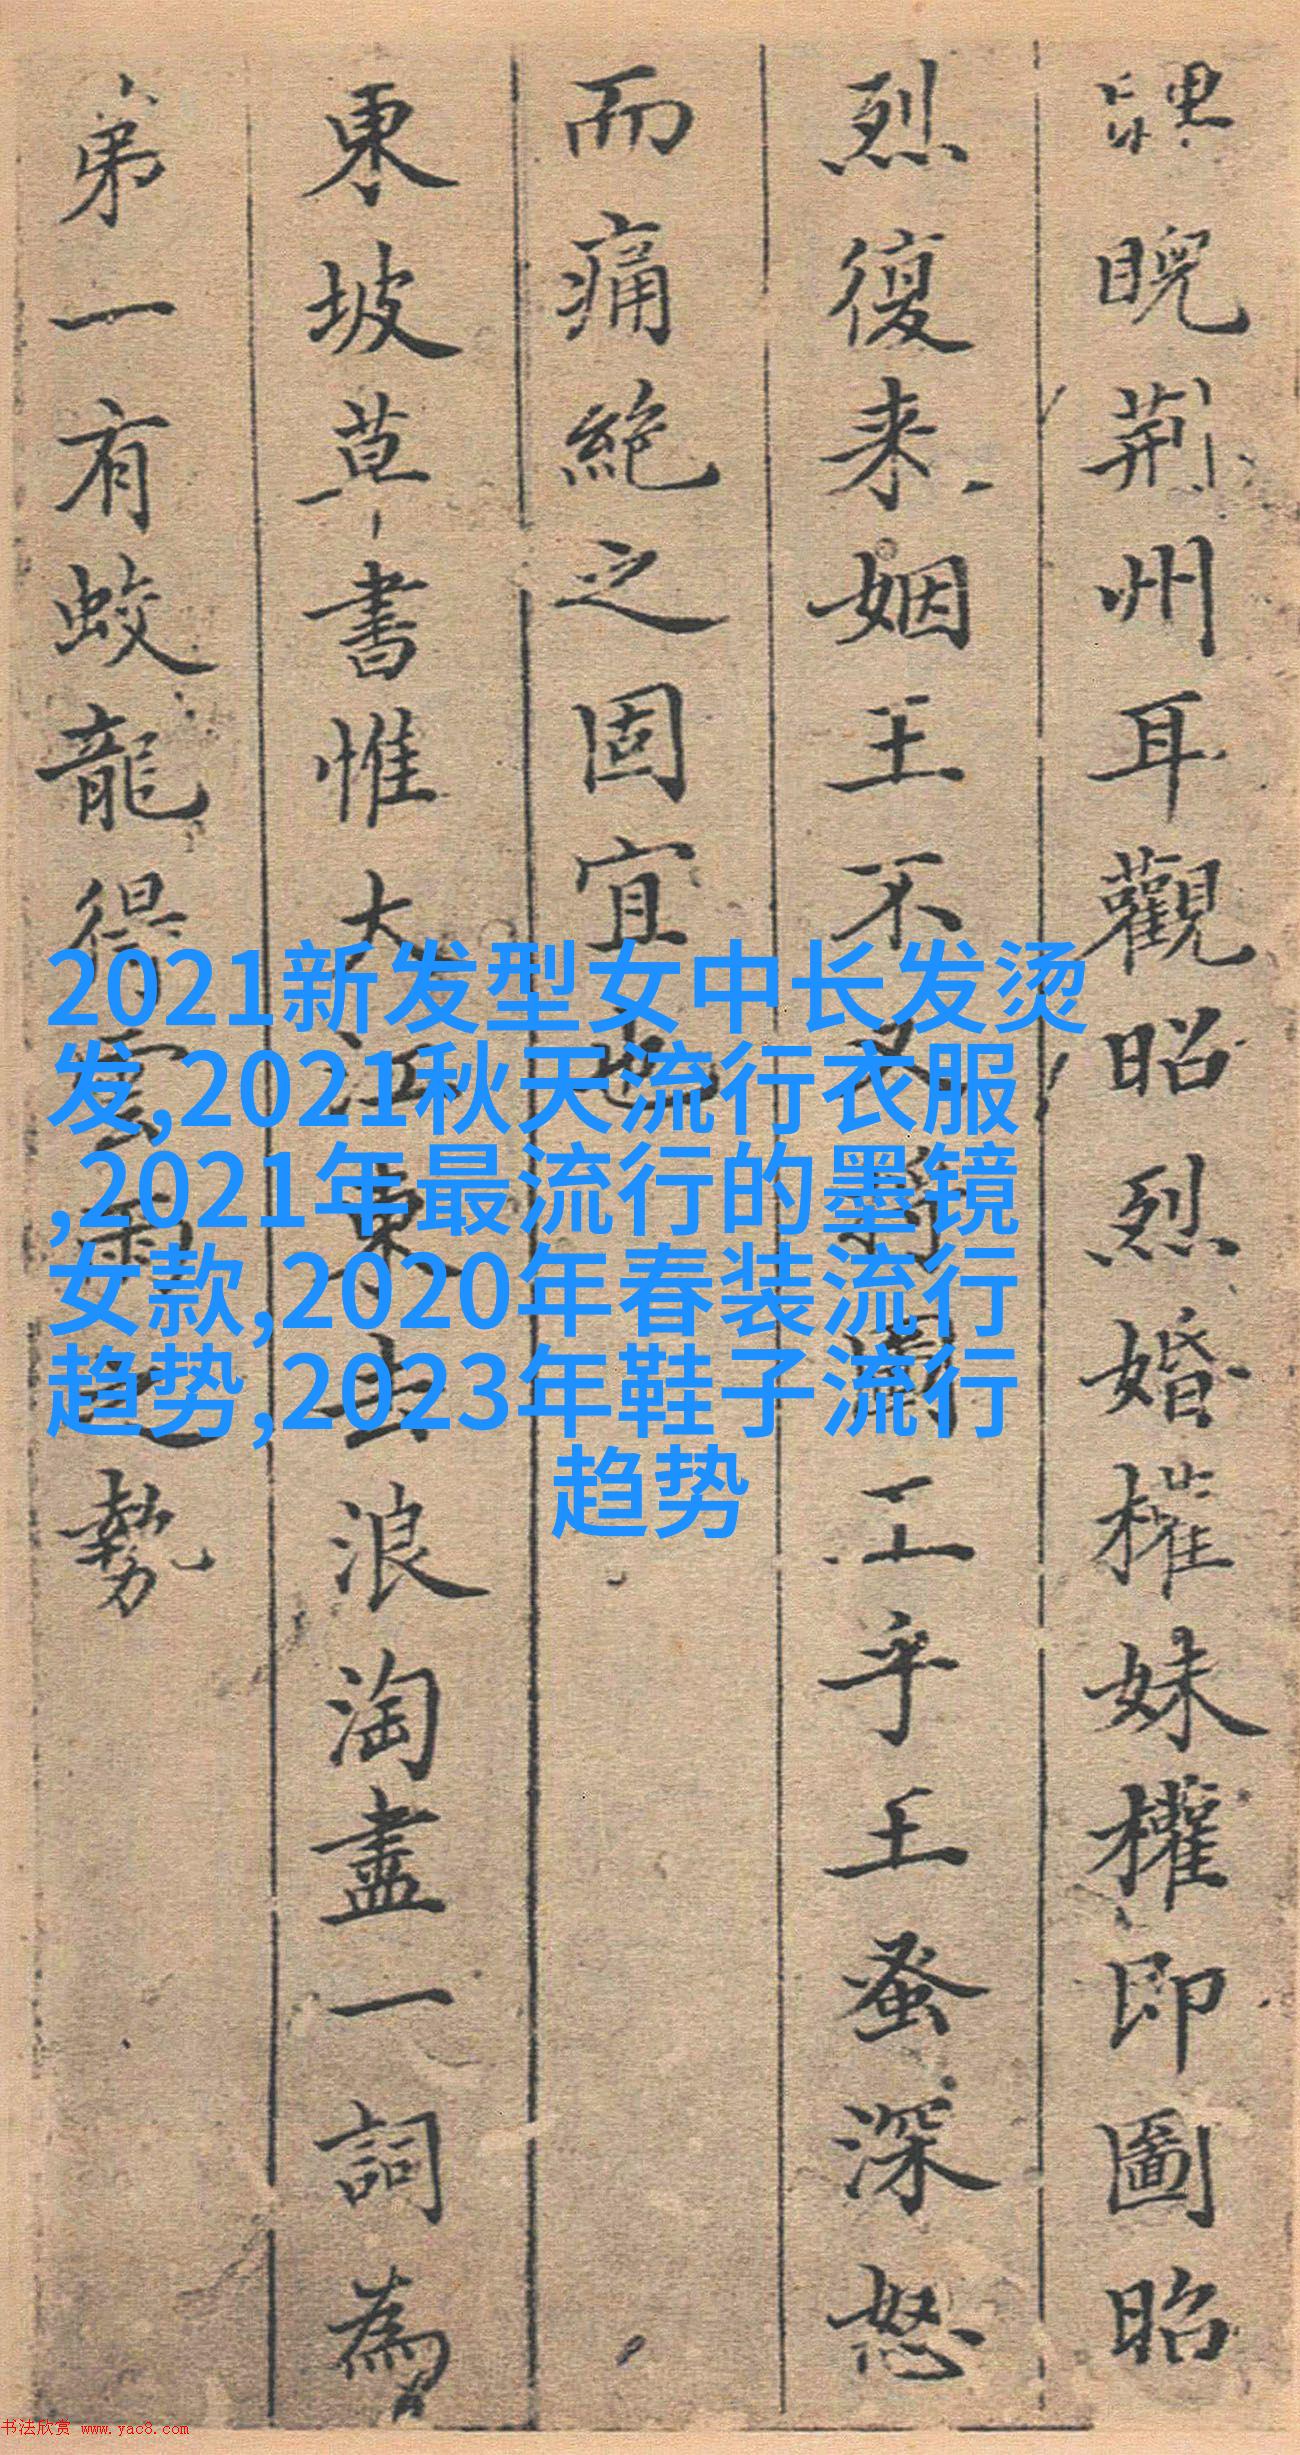 睨荊州耳觀昭烈婚權妹權即圖昭
烈復来姻王不工乎王蚤深怒
而痛絶之固宜也
東坡草書惟大江東去浪淘盡一詞為
弟一有蛟龍得雲雨之勢
2021新发型女中长发烫
发,2021秋天流行衣服
,2021年最流行的墨镜
女款,2020年春装流行
趋势,2023年鞋子流行
趋势
书法欣赏 www.yac8.com